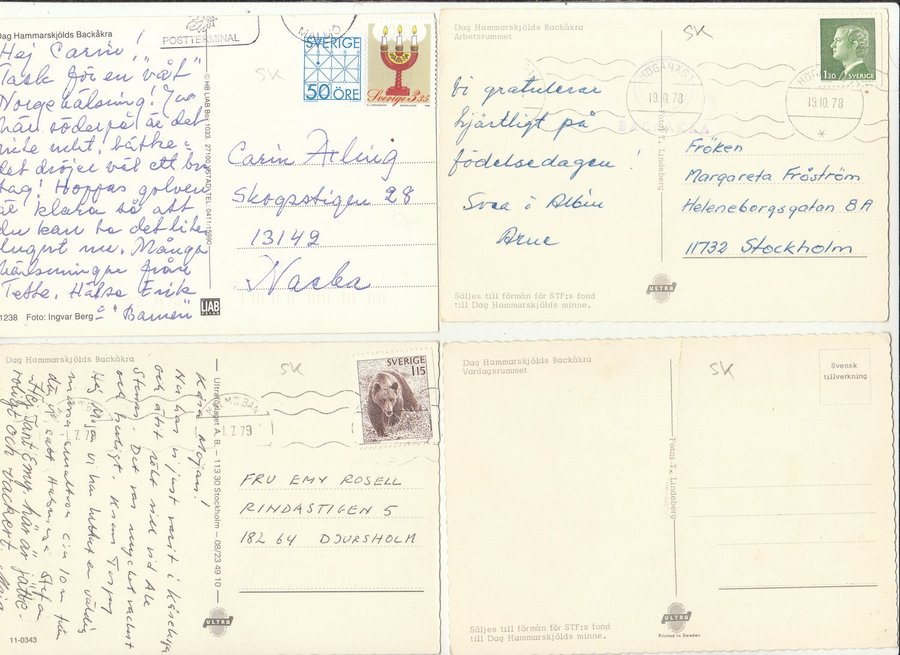 Dag Hammarskjölds Backåkra
POSTTERMINAL
MALMÖ
SK
SVERIGE
50 ÖRE
Sverige 3.35
Hej Carin!
Tack för en "våt"
Norgehälsning! Jo,
här söderpå är det
inte mkt. bättre
det dröjer väl ett bra
tag! Hoppas golven
är klara så att
du kan ta det lite
lugnt nu. Många
hälsningar från
Tette. Hälsa Erik
o "Barnen"
HB LIAB Box 1033, 271 00 YSTAD
Carin Arling
Skogsstigen 28
13142
Nacka
1238 Foto: Ingvar Berg
LIAB
Dag Hammarskjölds Backåkra
Arbetsrummet
SK
1.30 SVERIGE
HÖGANÄS
19.10.78
19.10.78
BACKÅKRA
Vi gratulerar
hjärtligt på
födelsedagen!
Svea o Albin
Arne
Foto: T. Lindeberg
Fröken
Margareta Fröström
Heleneborgsgatan 8A
11732 Stockholm
Säljes till förmån för STF:s fond
till Dag Hammarskjölds minne.
ULTRA
Dag Hammarskjölds Backåkra
SK
SVERIGE
115
7.79
1.7.79
Kära Mojan!
Nu har vi just varit i Kåseberga
och ätit rökt sill vid Ale
Stenar. Det var mycket vackert
och härligt. Kram
Hej Mojan vi har hittat en väldig
Hej Tant Emy. här är jätte-
roligt och vackert. Maria
Ultraförlaget A.B. – 113 30 Stockholm – 08/23 49 10
FRU EMY ROSELL
RINDASTIGEN 5
182 64 DJURSHOLM
11-0343
ULTRA
Dag Hammarskjölds Backåkra
Vardagsrummet
SK
Svensk
tillverkning
Foto: T. Lindeberg
Säljes till förmån för STF:s fond
till Dag Hammarskjölds minne.
ULTRA
Printed in Sweden